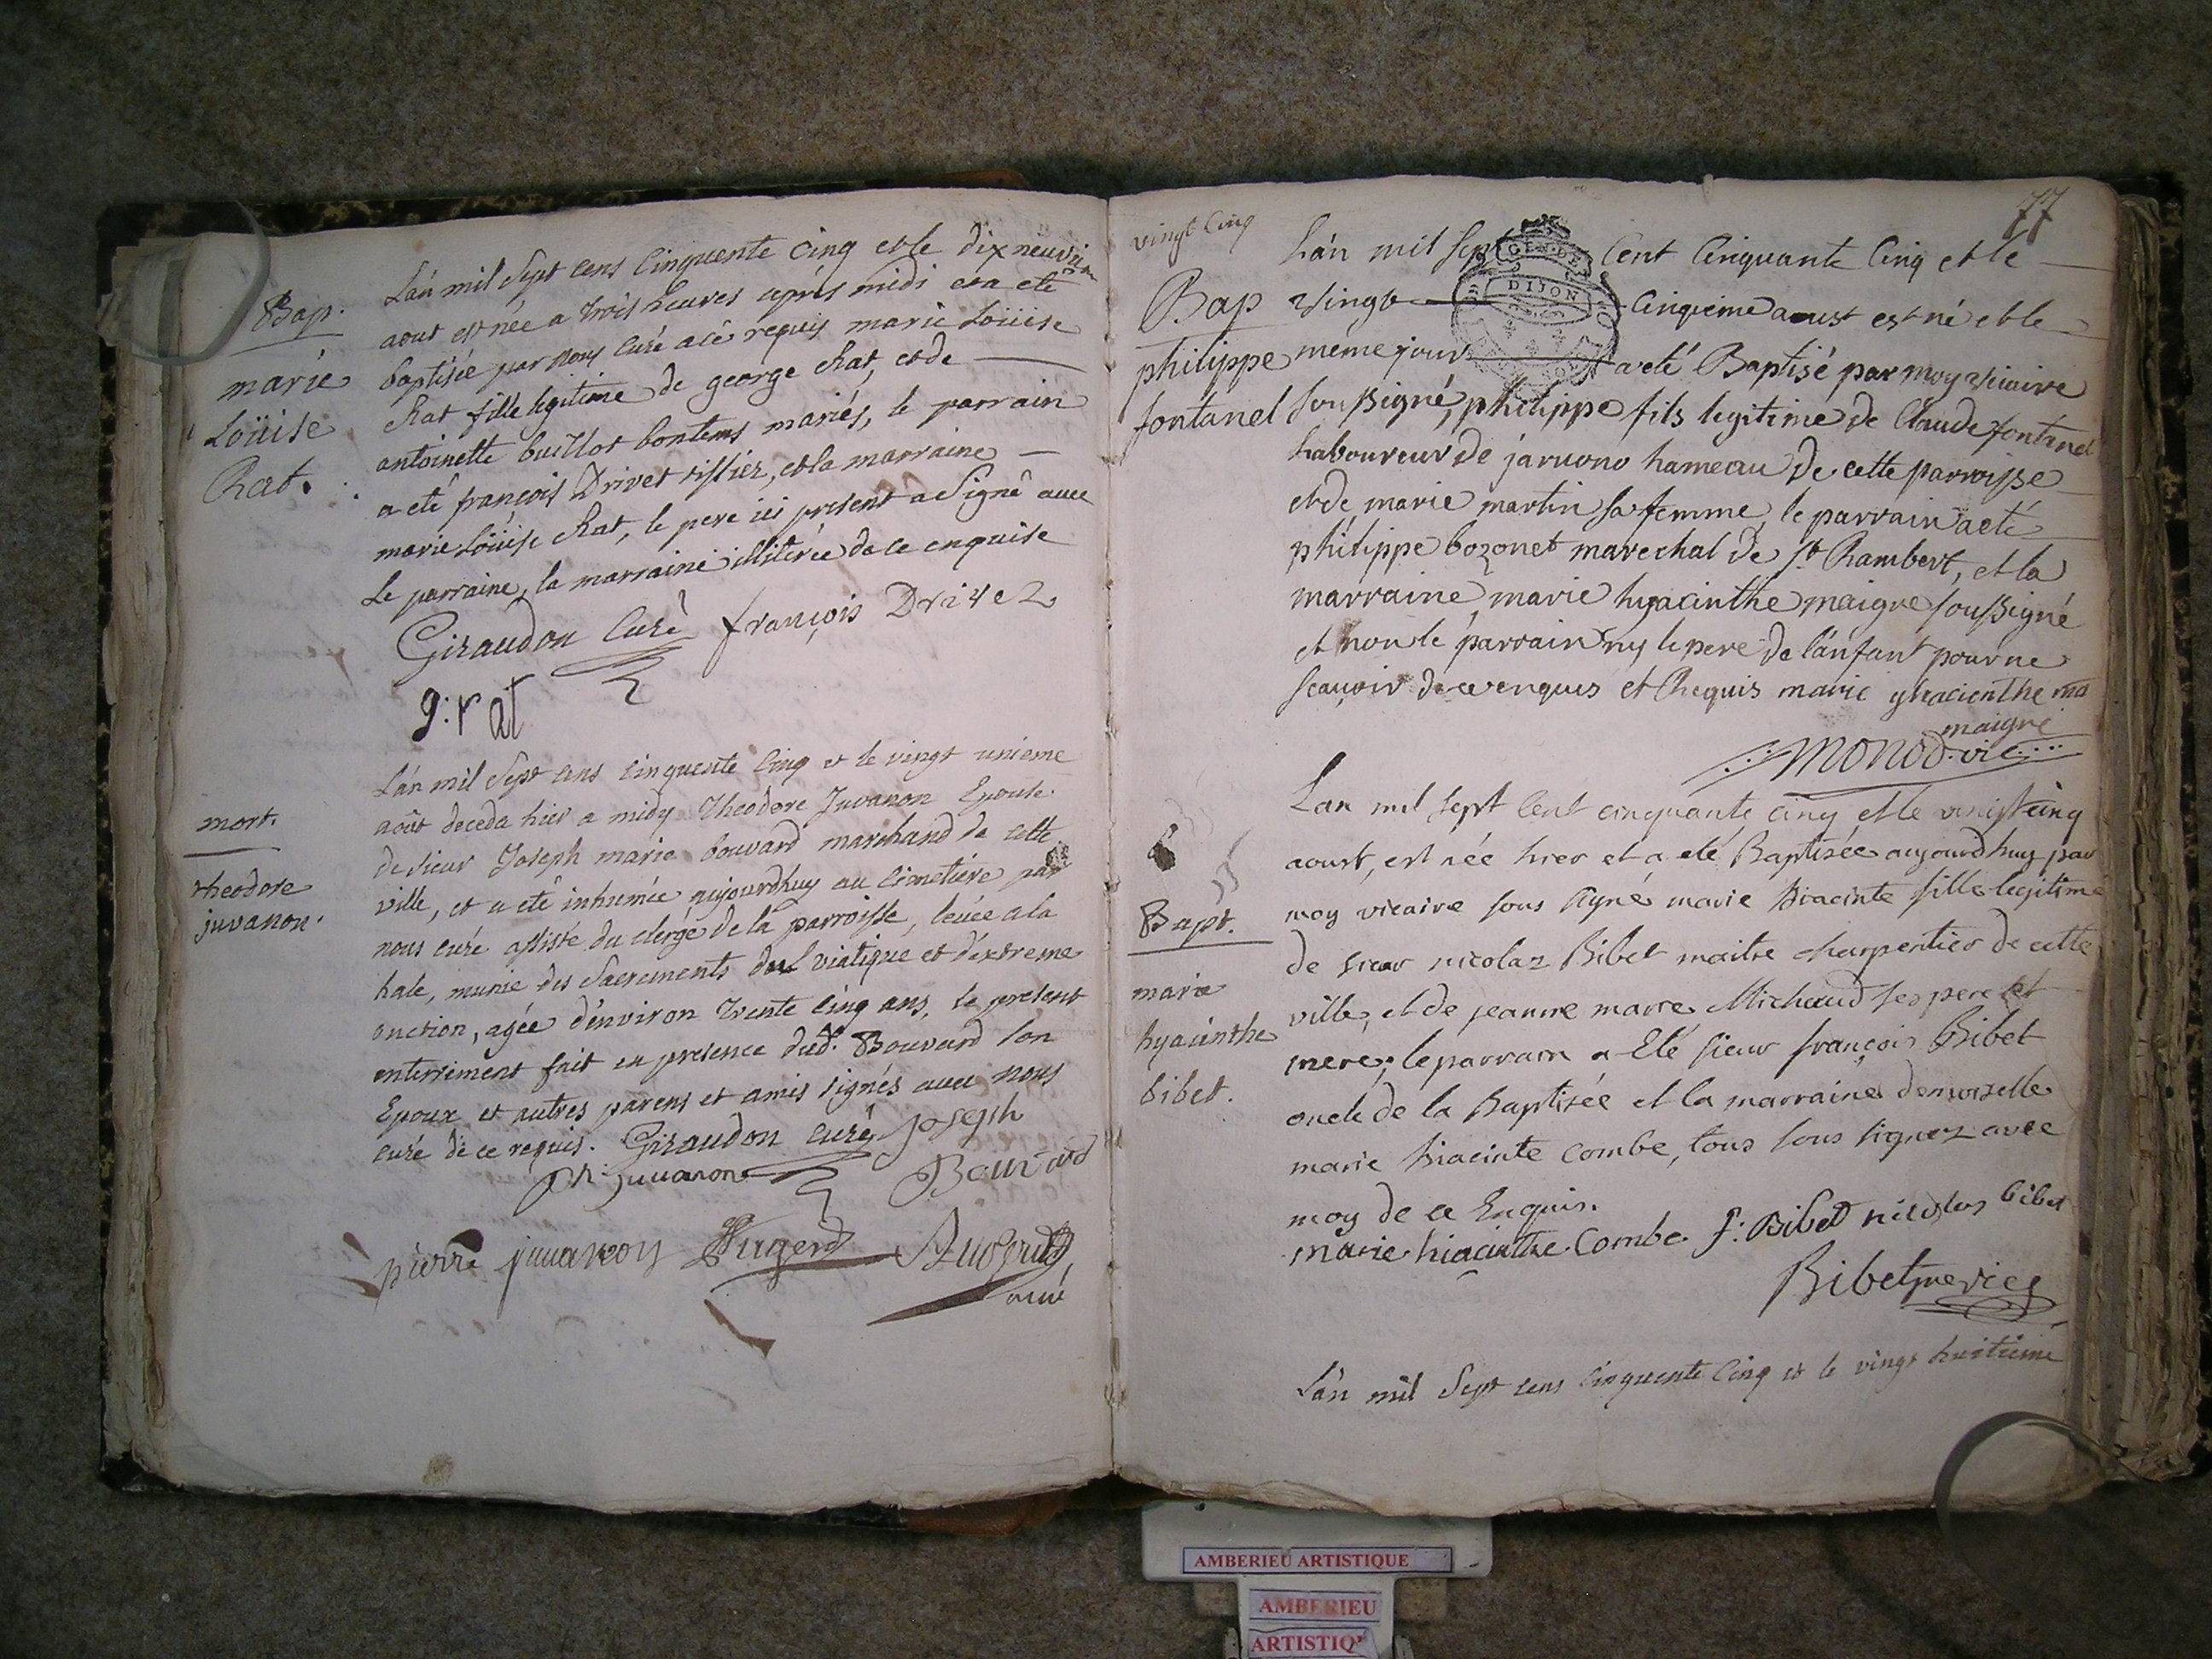 Bap.
marie
Loüise
Rat.
L'án mil Sept cens Cinquente Cinq et le dix neuviem
aout est née a trois heures aprés midi et a eté
baptisée par nous Curé a ce requis marie Loüise
Rat fille legitime de george Rat, et de
antoinette buillot bontems mariés, le parrain
a eté françois Drivet tissier, et la marraine
marie Loüise Rat, le pere ici present a Signé avec
Le parraine, la marraine illiterée de ce enquise
Giraudon Curé françois Drivez
g: rat
mort.
theodore
juvanon.
L'án mil Sept cens Cinquente Cinq et le vingt unieme
août deceda hier a midy Theodore Juvanon Epouse
de Sieur Joseph marie bouvard marchand de cette
ville, et a eté inhumée aujourdhuy au Cimetiére par
nous curé assisté du clergé de la parroisse, levée a la
hale, munie des Sacrements du viatique et d'éxtreme
onction, agée d'environ trente Cinq ans, le present
enterrement fait en presence dud. Bouvard son
Epoux et autres parens et amis signés avec nous
curé de ce requis. Giraudon curé Joseph
ph: juvanon Bouvard
pierre juvanon Augerd Augerd
77
vingt Cinq
Bap
philippe
fontanel
L'án mil Sept Cent Cinquante Cinq et le
GEN DE
DIJON
vingt Cinqieme aoust est né et le
méme jour a eté Baptisé par moy viciaire
soussigné, philippe fils legitime de Claude fontanel
Laboureur de jarvono hameau de cette parroisse
et de marie martin sa femme, le parrain a eté
philippe bozonet marechal de St. Rambert, et la
marraine marie hyacinthe maigre soussigné
et non le parrain ny le pere de l'ánfant pour ne
sçauoir de ce enquis et Requis marie yhacienthe ma
maigre
MONOD. vic
Bapt.
marie
hyacinthe
bibet.
L'an mil sept Cent cinquante cinq et le vingt cinq
aoust, est née hier et a eté Baptisée aujourdhuy par
moy vicaire sous signé marie hiacinte fille legitime
de sieur nicolaz Bibet maitre charpentier de cette
ville, et de jeanne marie Michaud ses pere et
mere; le parrain a Eté sieur françois Bibet
oncle de la Baptisée et la marraine demoiselle
marie hiacinte Combe, tous sous signez avec
moy de ce Enquis.
marie hiacinthe Combe f: Bibet nicolas bibet
Bibet
L'án mil Sept cens Cinquente Cinq et le vingt huitieme
AMBERIEU ARTISTIQUE
AMBERIEU
ARTISTIQ